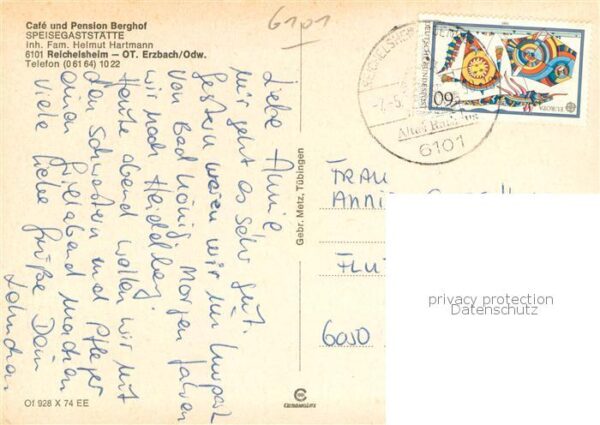 Café und Pension Berghof
SPEISEGASTSTÄTTE
Inh. Fam. Helmut Hartmann
6101 Reichelsheim — OT. Erzbach/Odw.
Telefon (0 61 64) 10 22
6101
Liebe Annie
mir geht es sehr gut.
Gestern waren wir im Kurpark
von Bad König Morgen fahren
wir nach Heidelberg.
Heute abend wollen wir mit
den Schwestern und Pfleger
einen Grillabend machen
Viele liebe Grüße Dein
Of 928 X 74 EE
Gebr. Metz, Tübingen
DEUTSCHE BUNDESPOST
60
EUROPA
6101
FRAU
ANNI
FLU
6050
privacy protection
Datenschutz